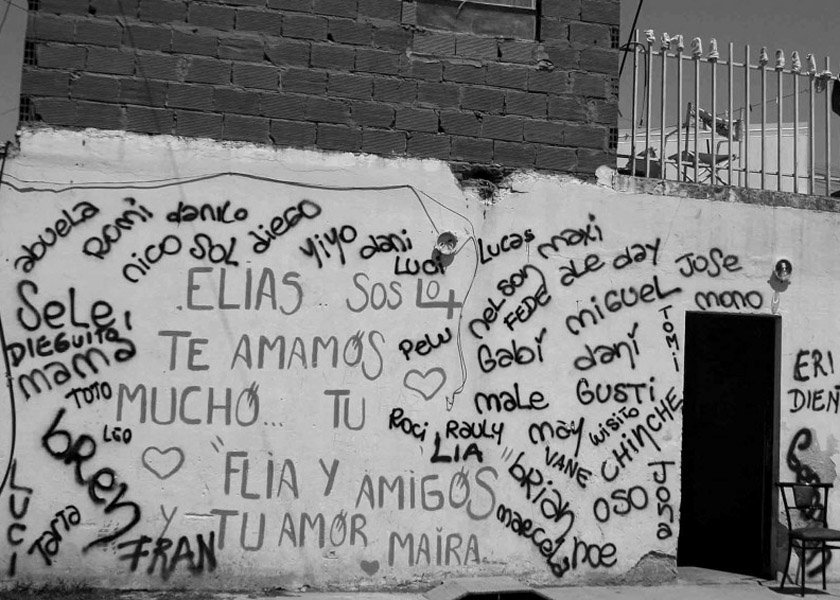 abuela
Romi
danilo
nico
SOL
diego
yiyo
dani
Luci
Lucas
maxi
ale
day
JOSE
mono
nelson
FEDE
miGUEL
TOMi
Sele
DIEGUito!
mamá
TOTO
Leo
bren
LUCI
Tata
FRAN
ELIAS SOS LO +
TE AMAMOS
MUCHO... TU
"FLIA Y AMIGOS"
Y TU AMOR
MAIRA
Pelu
Gabi
dani
male
GUSTi
Roci
RAULY
LIA
may
wisito
CHINCHE
VANE
brian
OSO
Jona
marcel
noe
ERI
DIEN